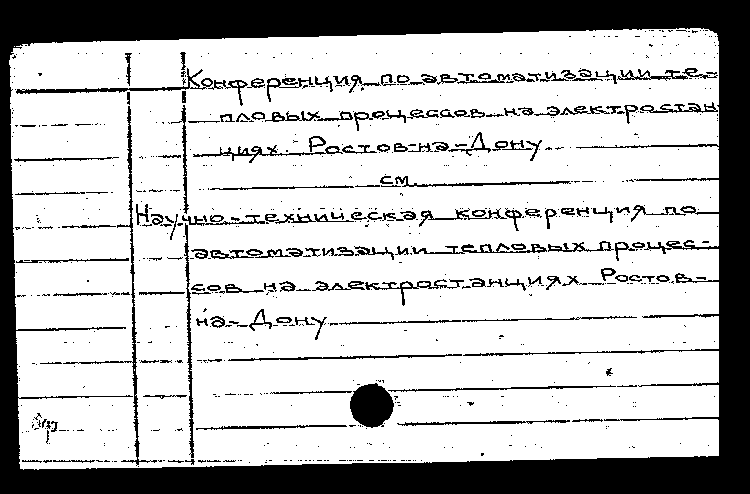 Конференция по автоматизации те-
пловых процессов на электростан
циях. Ростов-на-Дону
см.
Научно-техническая конференция по
автоматизации тепловых процес-
сов на электростанциях Ростов-
на-Дону